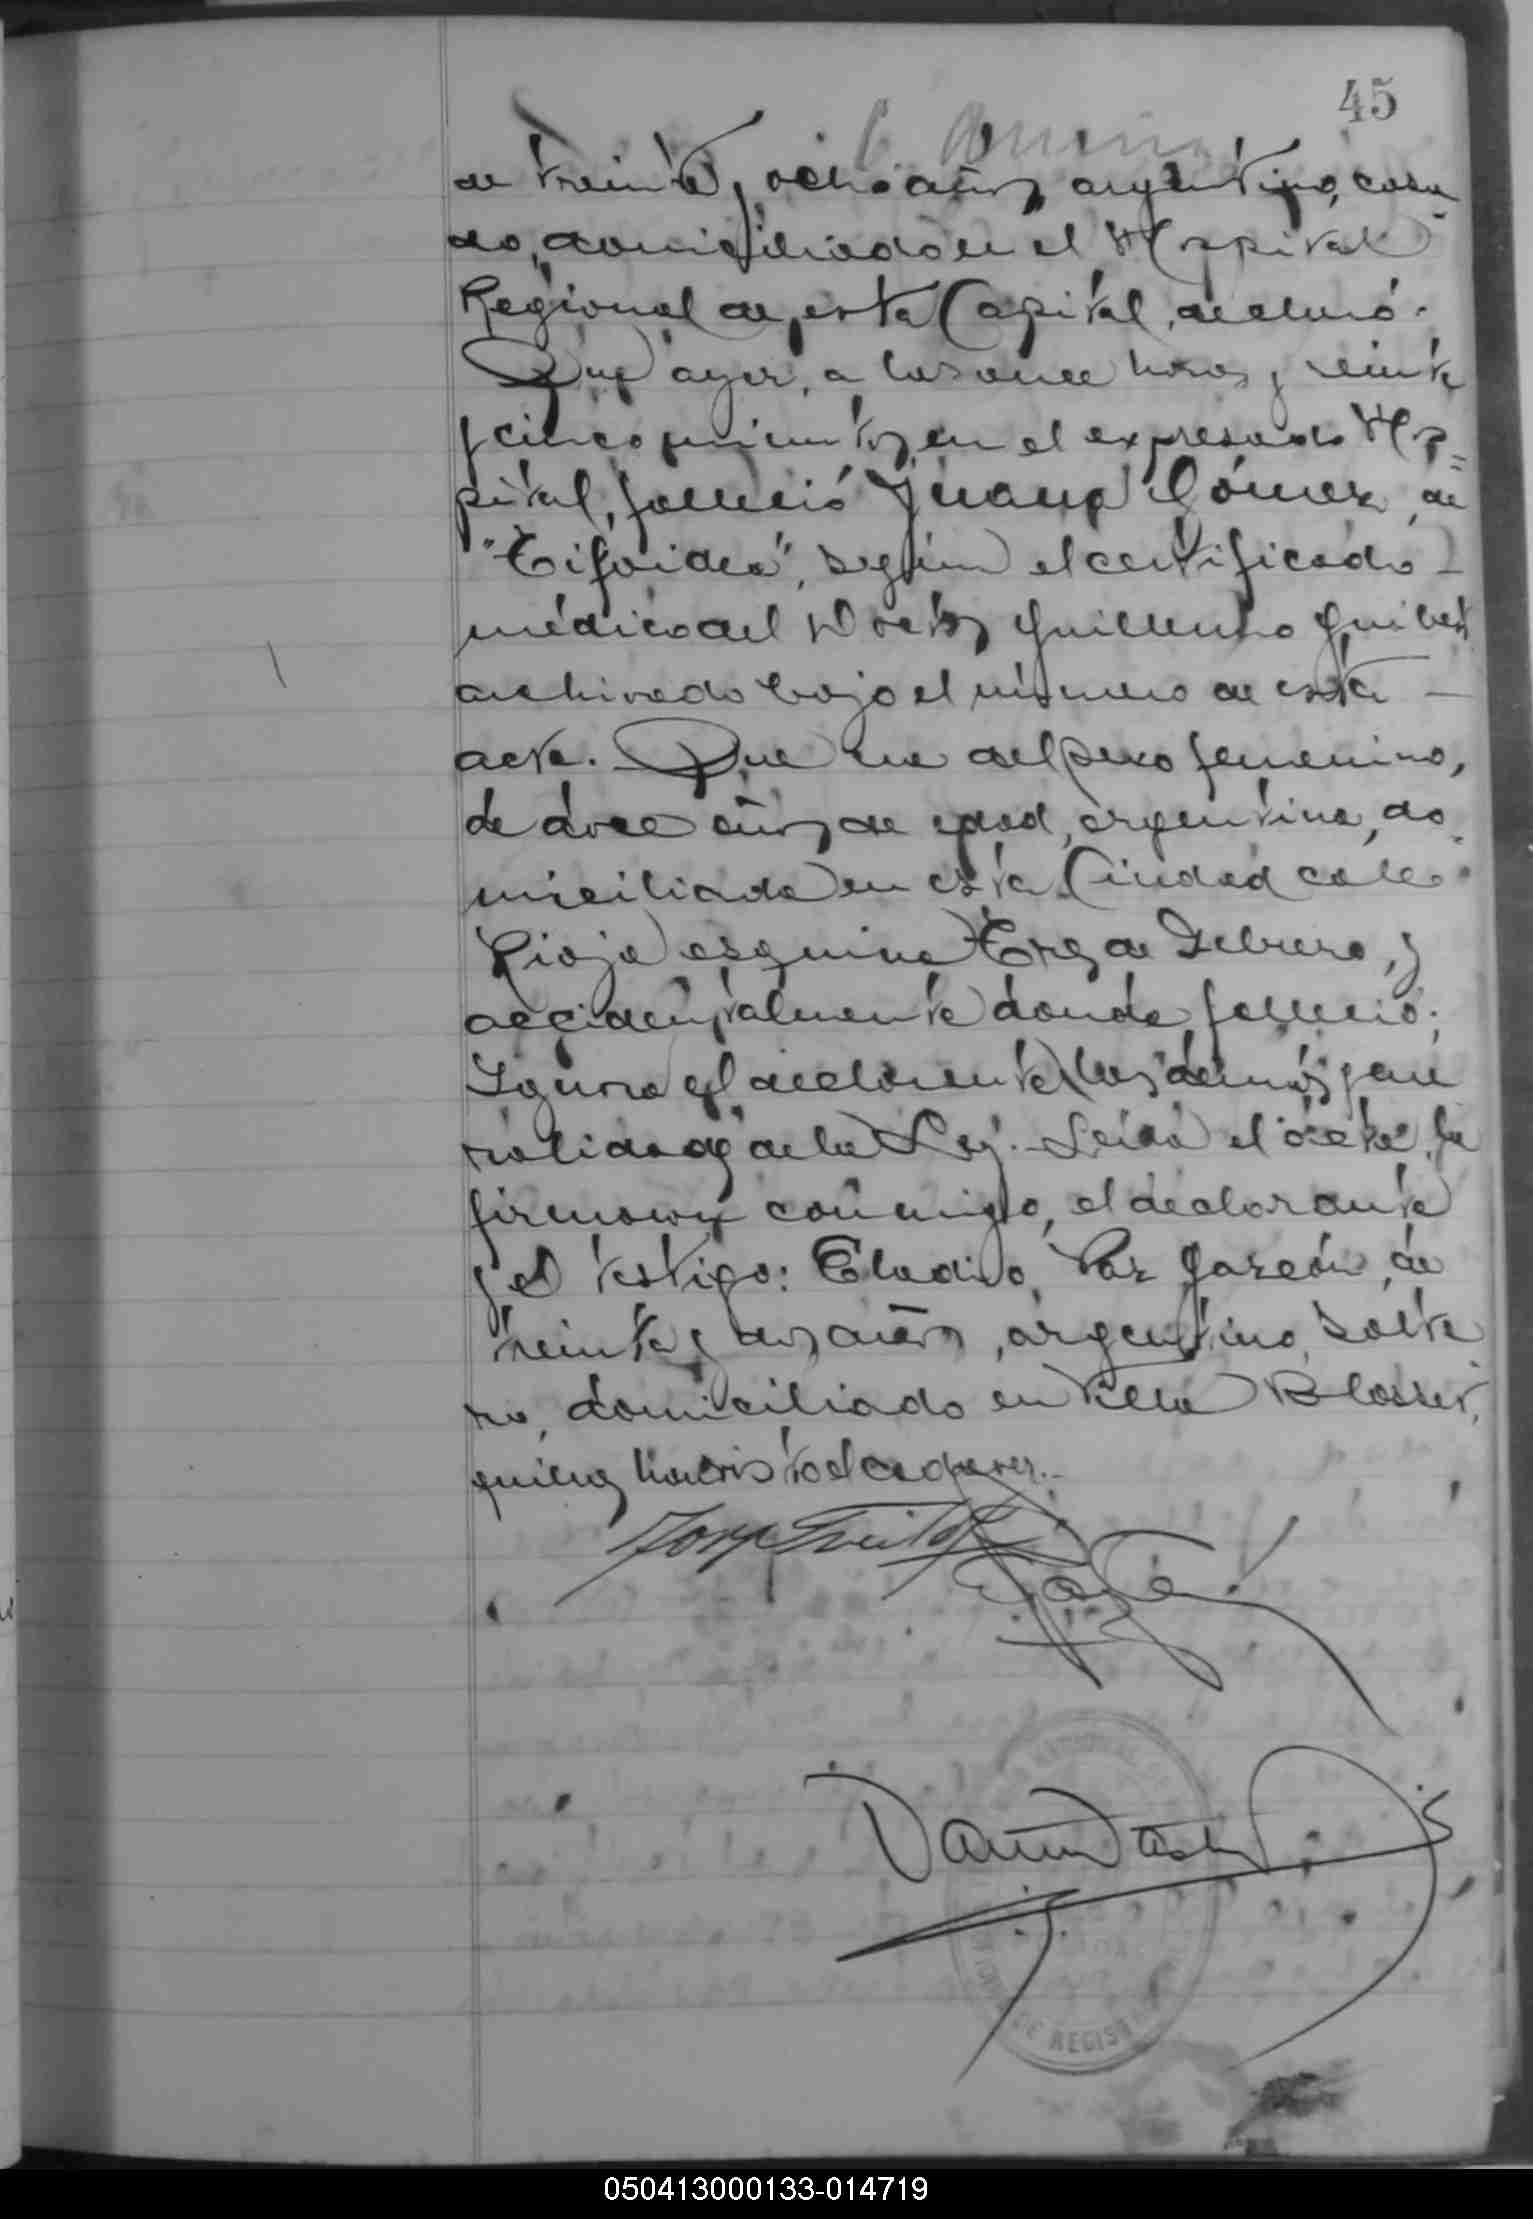 45
de treinta y ocho años, argentino, casa
do, domiciliado en el Hospital
Regional de esta Capital, declaró:
Que ayer, a las once horas y veinte
y cinco minutos, en el expresado Hos=
pital, falleció Juana Gómez, de
"Tifoidea", según el certificado
médico del Doctor Guillermo
archivado bajo el número de esta
acta. Que era del sexo femenino,
de doce años de edad, argentina, do
miciliada en esta Ciudad calle
Rioja esquina Tres de Febrero, y
accidentalmente donde falleció;
Ignora el declarante las demás gene
ralidades de la Ley. Leida el acta, la
firmaron conmigo, el declarante
y el testigo: Eladio Paz Garzón, de
treinta y dos años, argentino, solte
ro, domiciliado en Villa
quienes han visto el cadaver.
NACIONAL
DE REGIST
050413000133-014719